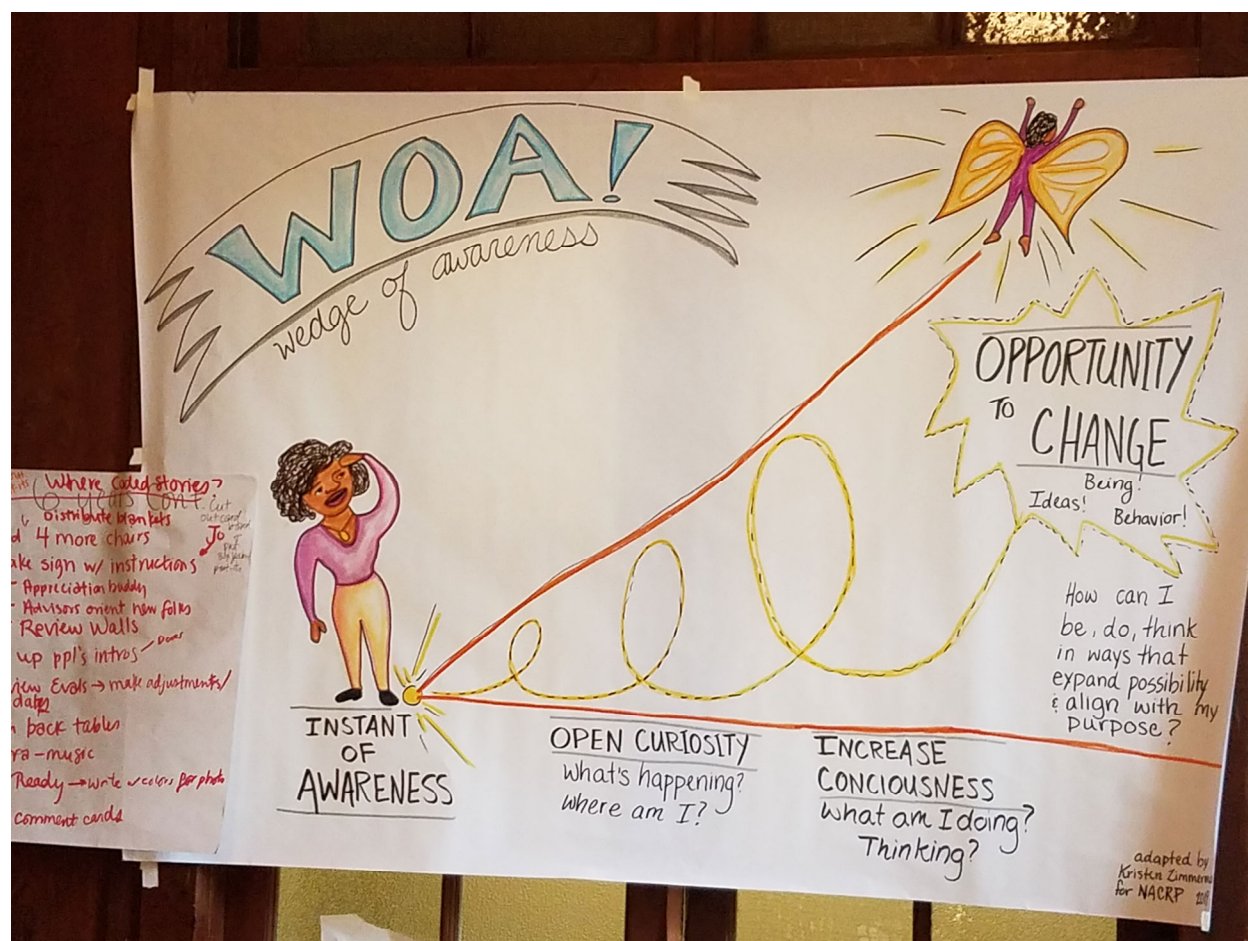 WOA!
wedge of awareness
OPPORTUNITY
TO
CHANGE
Being!
Ideas!
Behavior!
How can I
be, do, think
in ways that
expand possibility
& align with my
purpose?
INSTANT
OF
AWARENESS
OPEN CURIOSITY
What's happening?
Where am I?
INCREASE
CONCIOUSNESS
What am I doing?
Thinking?
adapted by
Kristen
for NACRP
Where Coded Stories?
Distribute blankets
4 more chairs
Jo
sign w/ instructions
Appreciation buddy
Advisors orient new folks
Review Walls
up ppl's intros
Evals → make adjustments/
back tables
music
Ready → write w/colors for photo
comment cards